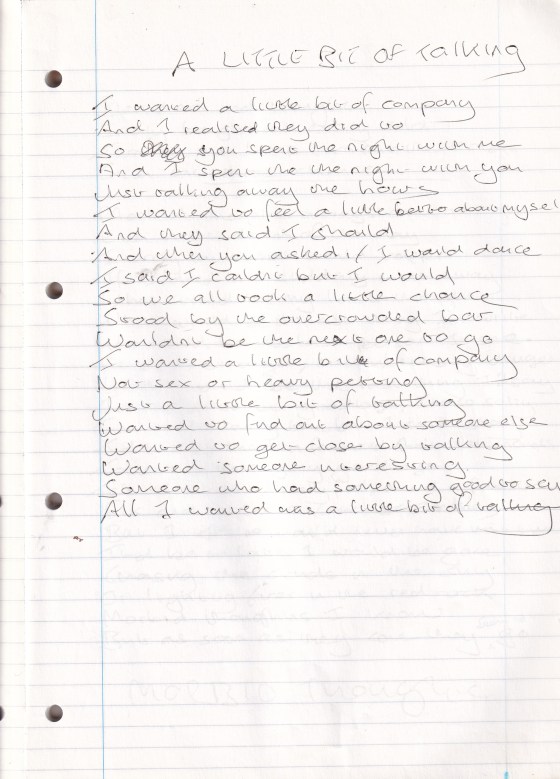 A LITTLE BIT OF TALKING
I wanted a little bit of company
And I realised they did to
So you spent the night with me
And I spent the the night with you
Just talking away the hours
I wanted to feel a little better about mysel
And they said I should
And when you asked if I would dance
I said I couldn't but I would
So we all took a little chance
Stood by the overcrowded bar
Wouldnt be the next one to go
I wanted a little bit of company
Not sex or heavy petting
Just a little bit of talking
Wanted to find out about someone else
Wanted to get close by talking
Wanted someone interesting
Someone who had something good to say
All I wanted was a little bit of talking